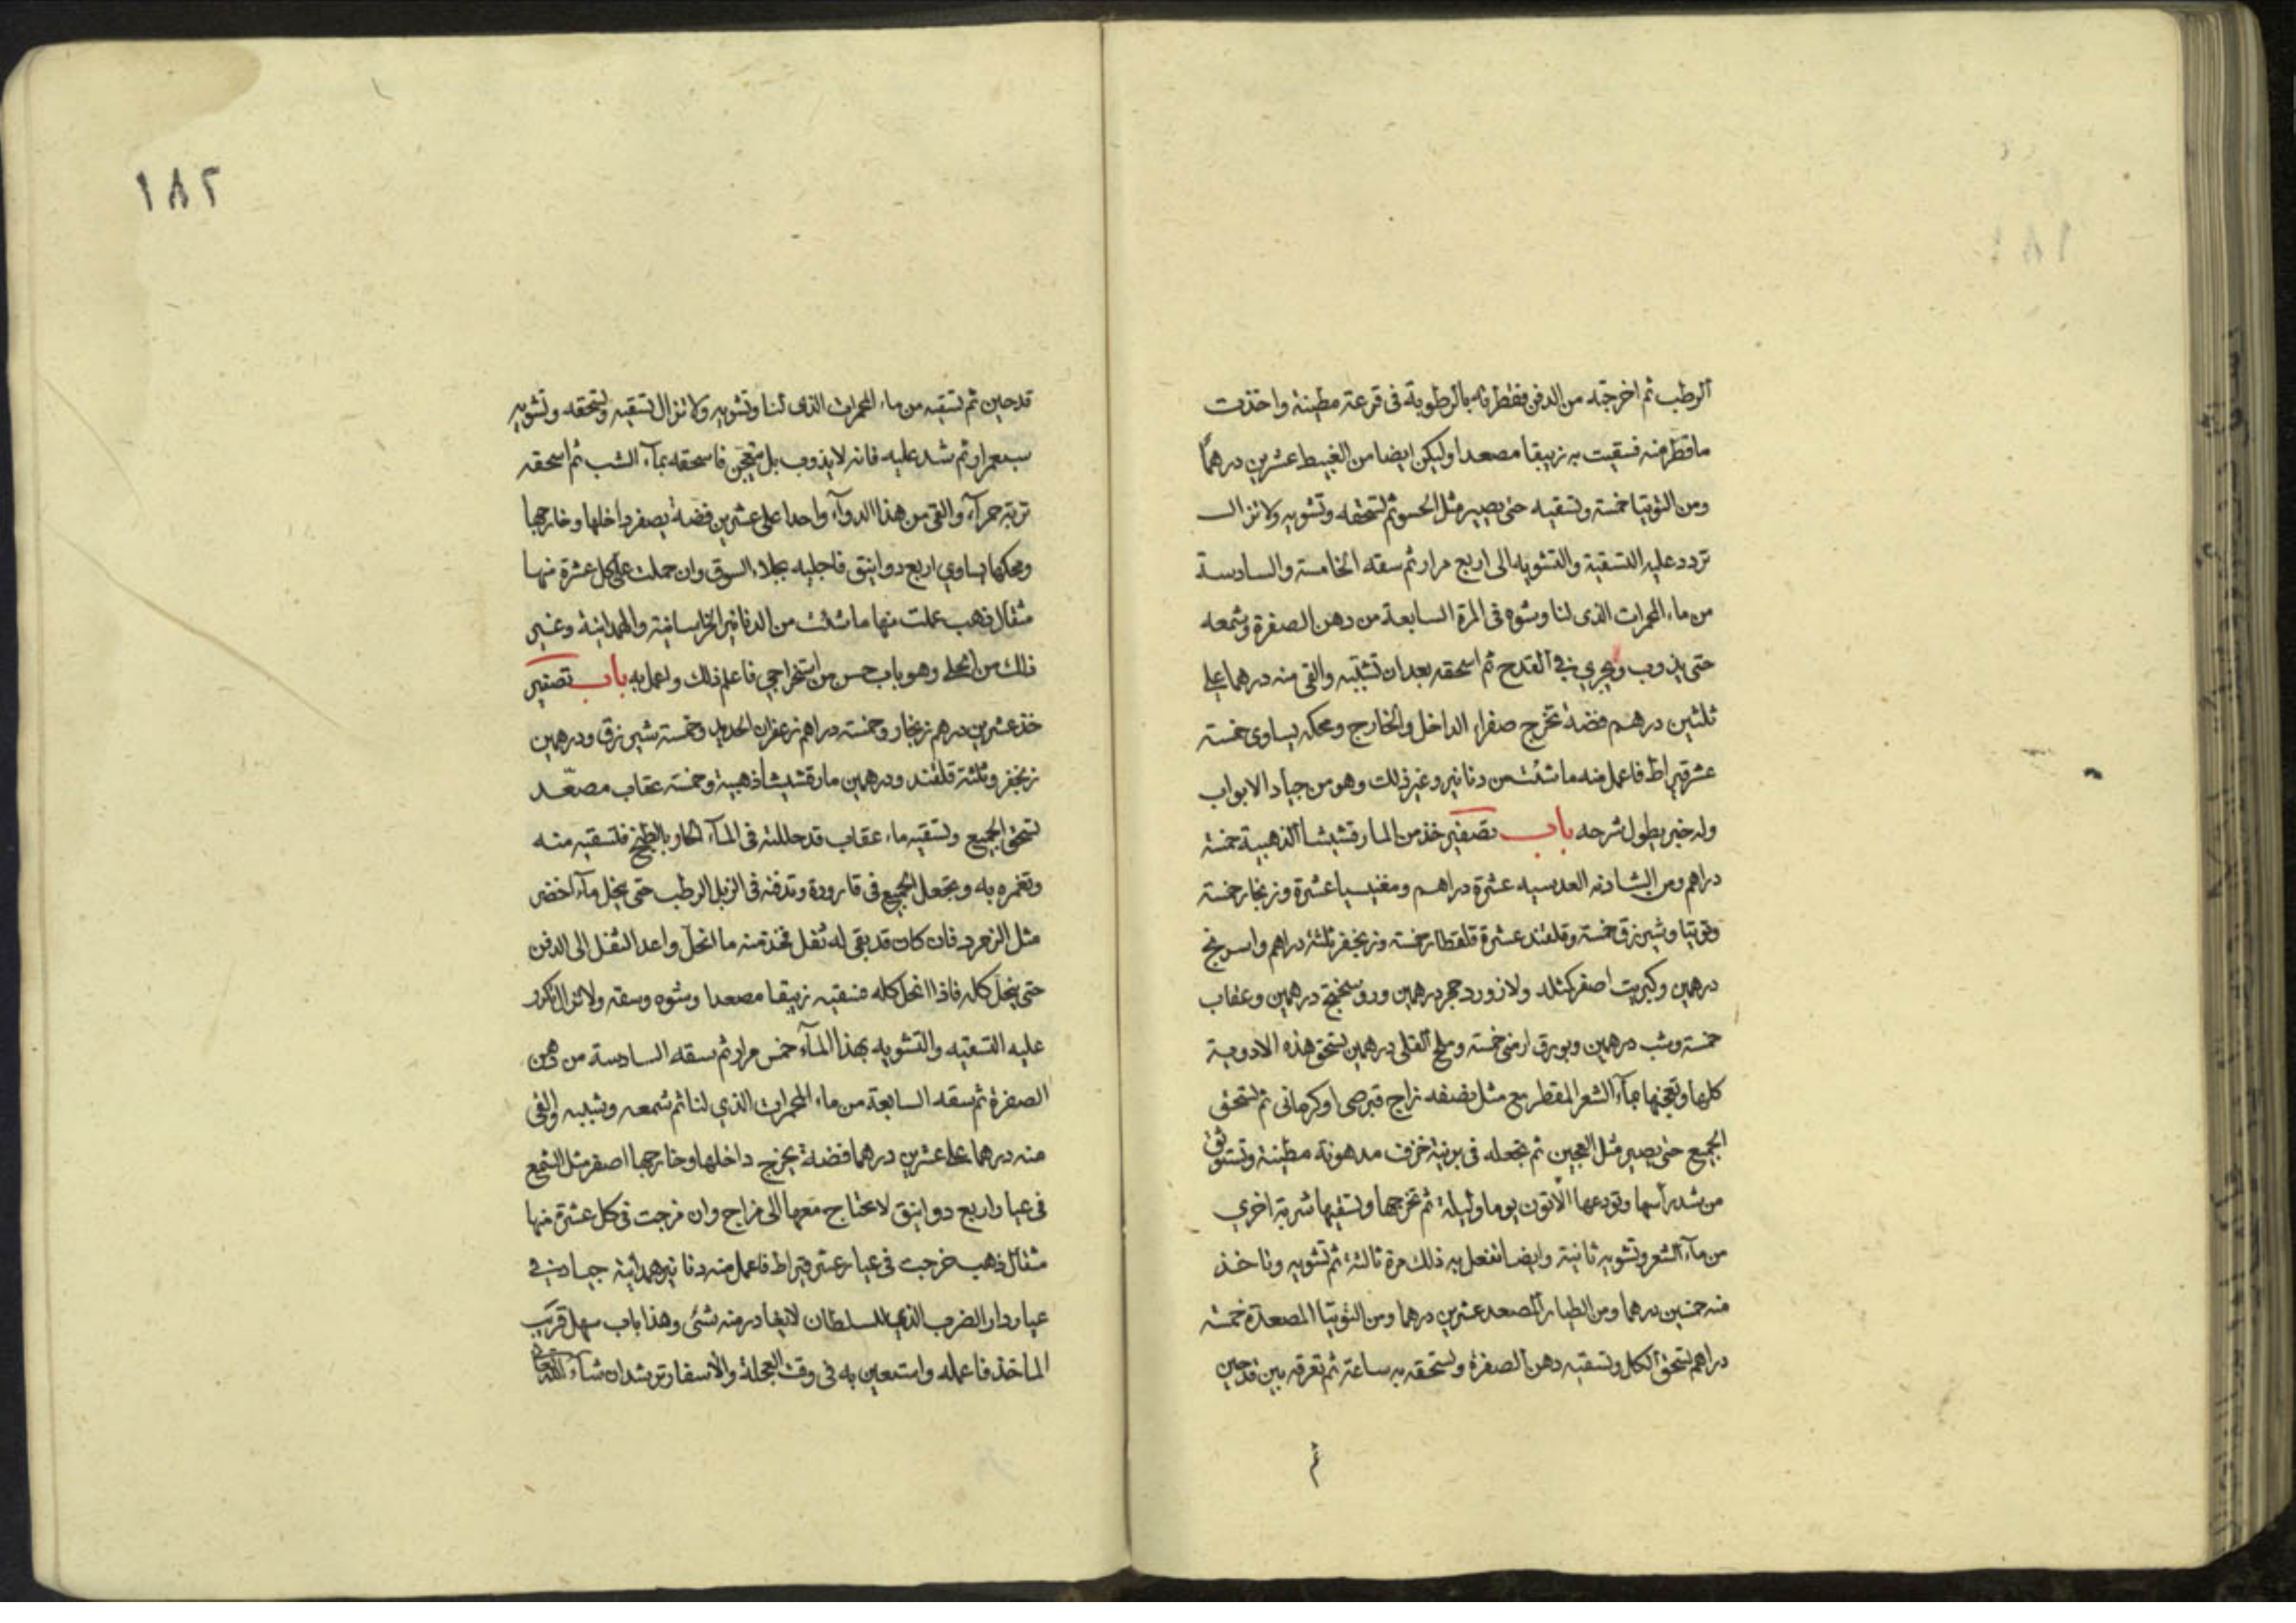 الرطب ثم اخرجته من الدفن فقطرته بالرطوبة في قرعة مطينة واخذت
ما قطر منه فسقيت به زيبقا مصعدا وليكن ايضا من الغبيط عشرين درهمًا
ومن التوتيا خمسة وتسقيه حتى يصير مثل الحسو ثم تسحقه وتشويه ولا تزال
تردد عليه التسقية والتشويه الى اربع مرار ثم سقه الخامسة والسادسة
من ماء المحمرات الذى لنا وشوه فى المرة السابعة من دهن الصفرة وشمعه
حتى يذوب ويجري في القدح ثم اسحقه بعد ان تشببه والقى منه درهما على
ثلثين درهم فضة تخرج صفراء الداخل والخارج ومحكه يساوى خمسة
عشر قيراط فاعمل منه ما شئت من دنانير وغير ذلك وهو من جياد الابواب
وله خبر يطول شرحه باب تصفير خذ من المارقشيشا الذهبية خمسة
دراهم ومن الشادنه العدسيه عشرة دراهم ومغنيسيا عشرة وزنجار خمسة
وتوتيا وشيرزق خمسة وقلقند عشرة قلقطار خمسة وزنجفر ثلثة دراهم واسرنج
درهمين وكبريت اصفر كمثله ولازورد حجر درهمين وروسختج درهمين وعقاب
خمسة وشب درهمين وبورق ارمنى خمسة وملح القلى درهمين تسحق هذه الادوية
كلها وتعجنها بمآء الشعر المقطر مع مثل نصفه زاج قبرصى اوكرمانى ثم تسحق
الجميع حتى يصير مثل العجين ثم تجعله فى برنية خزف مدهونة مطينة وتستوثق
من شد رأسها وتودعها الأتون يوما وليلة ثم تخرجها وتسقيها شربة اخري
من مآء الشعر وتشويه ثانية وايضا تفعل به ذلك مرة ثالثة ثم تشويه وتاخذ
منه خمسين درهما ومن الطيار المصعد عشرين درهما ومن التوتيا المصعدة خمسة
دراهم تسحق الكل وتسقيه دهن الصفرة وتسحقه به ساعة ثم تغرقه بين قدحين
١٨٢
قدحين ثم تسقيه من ماء المحمرات الذى لنا وتشويه ولا تزال تسقيه وتسحقه وتشويه
سبع مرار ثم شد عليه فانه لا يذوب بل يتعجن فاسحقه بمآء الشب ثم اسحقه
تربة حمرآء والقى من هذا الدوآء واحدا على عشرين فضة يصفر داخلها وخارجها
ومحكها يساوي اربع دوانيق فاجليه بجلاء السوق وان حملت على كل عشرة منها
مثقال ذهب عملت منها ما شئت من الدنانير الخراسانية والهمدانية وغير
ذلك من الحلى وهو باب حسن من استخراجى فاعلم ذلك واعمل به باب تصفير
خذ عشرين درهم زنجار وخمسة دراهم زعفران الحديد وخمسة شيرزق ودرهمين
زنجفر وثلثة قلقند ودرهمين مارقشيشا ذهبية وخمسة عقاب مصعّد
تسحق الجميع وتسقيه ماء عقاب قد حللته فى المآء الحار بالطبخ فتسقيه منه
وتغمره به وتجعل الجميع فى قارورة وتدفنه فى الزبل الرطب حتى ينحل مآء اخضر
مثل الزمرد فان كان قد بقى له ثفل فخذ منه ما انحل واعد الثفل الى الدفن
حتى ينحل كله فاذا انحل كله فتسقيه زيبقا مصعدا وشوه وسقه ولا تزال تكرر
عليه التسقيه والتشويه بهذا المآء خمس مرار ثم سقه السادسة من دهن
الصفرة ثم سقه السابعة من ماء المحمرات الذي لنا ثم شمعه وشببه والقى
منه درهما على عشرين درهما فضة يخرج داخلها وخارجها اصفر مثل الشمع
فى عيار اربع دوانيق لا تحتاج معها الى مزاج وان مزجت فى كل عشرة منها
مثقال ذهب خرجت فى عيار عشر قيراط فاعمل منه دنانير همدانية جياد في
عيار دار الضرب الذي للسلطان لا يغادر منه شئ وهذا باب سهل قريب
الماخذ فاعمله واستعين به فى وقت العجلة والأسفار ترشد ان شاء الله تعالى